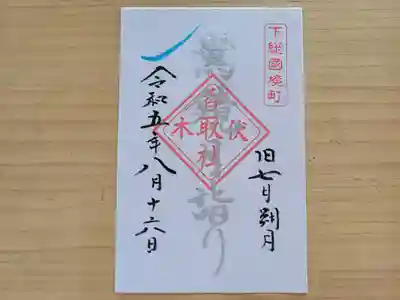 下総國境町
旧七月朔月
詣り
香取社
伏木
令和五年八月十六日